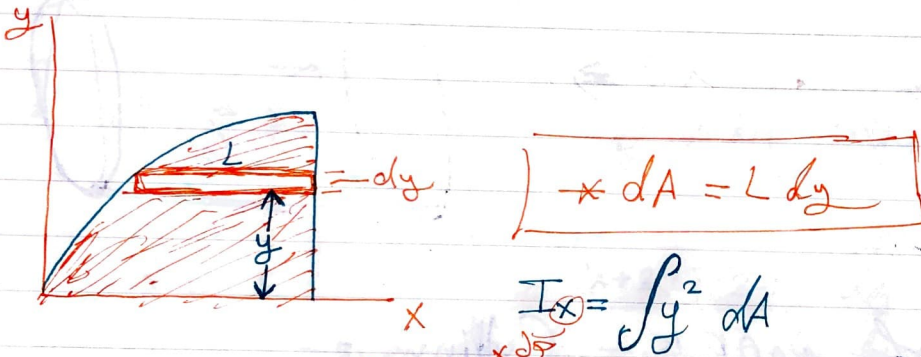 y
L
dy
y
x
* dA = L dy
Ix = ∫y² dA